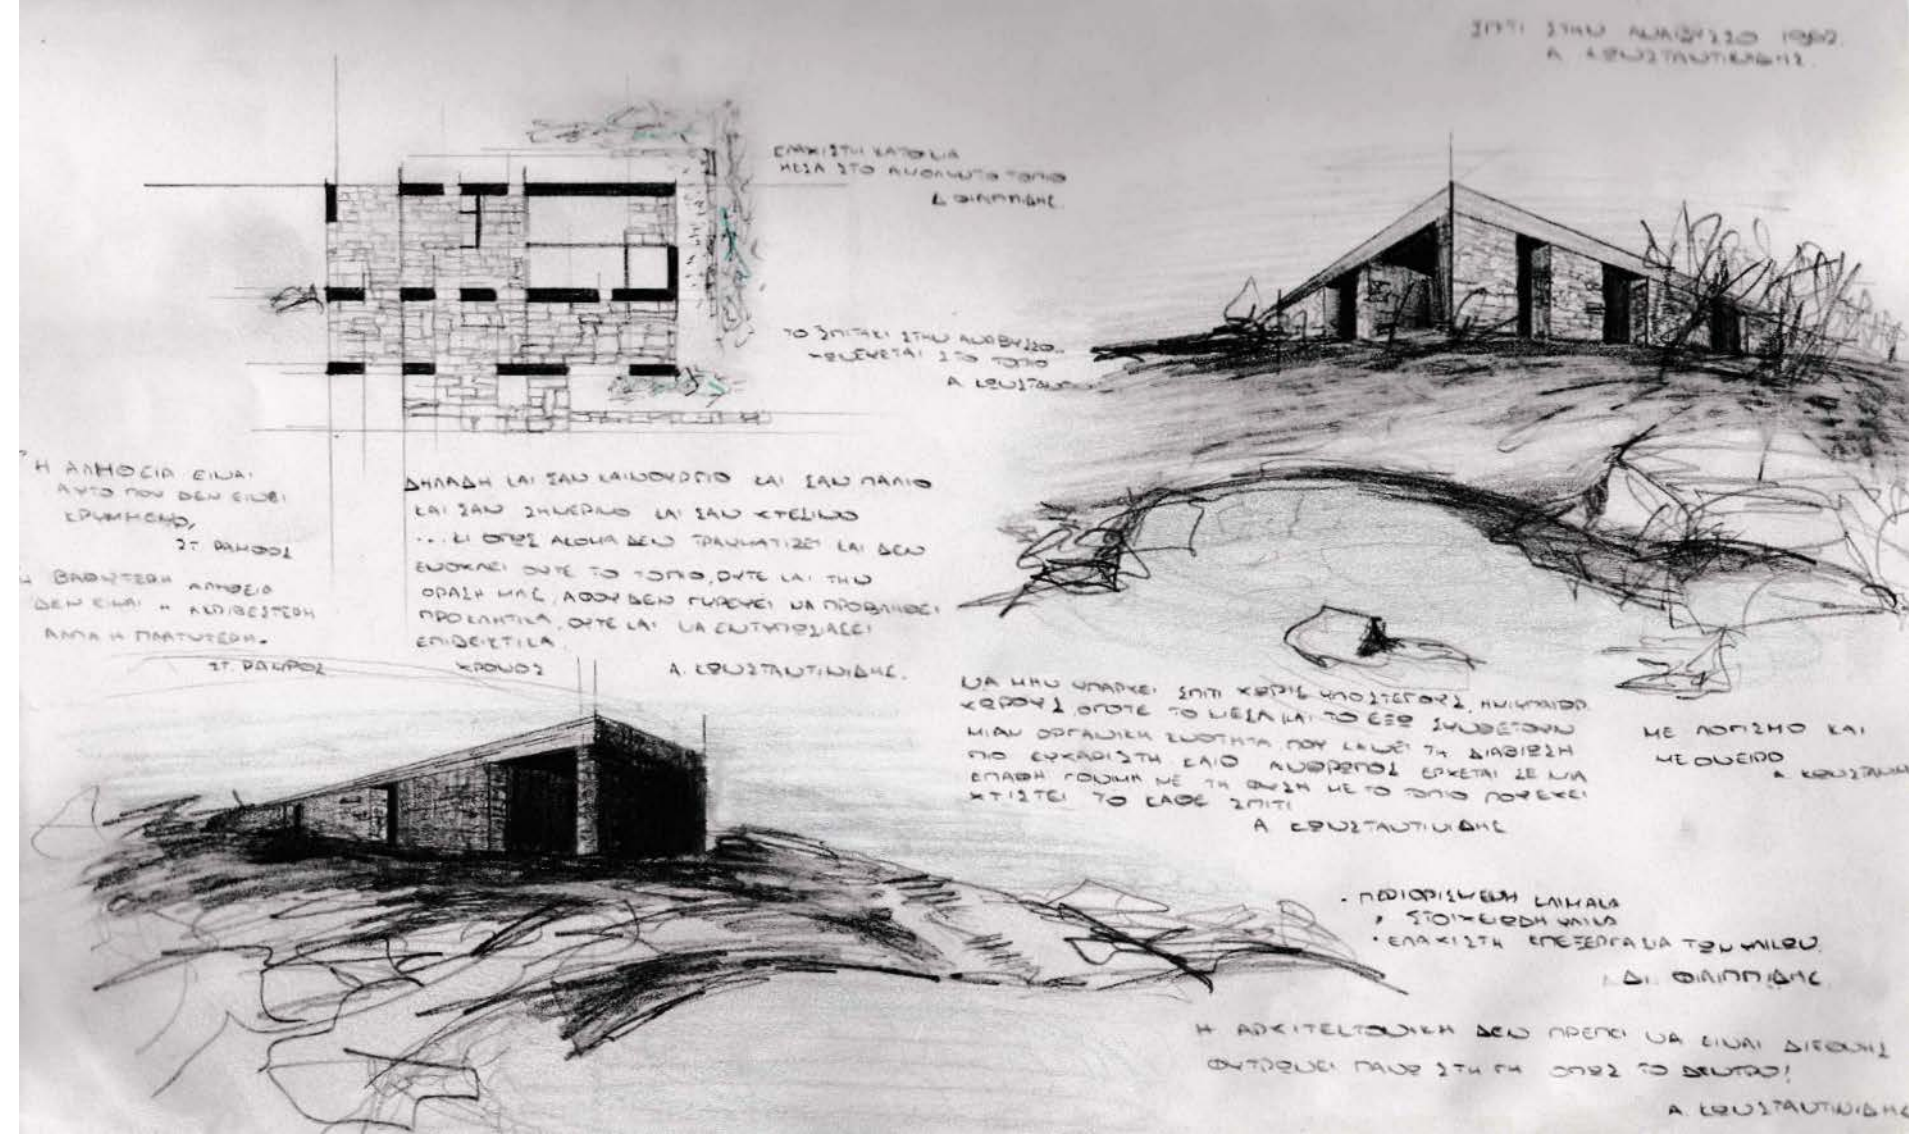 ΣΠΙΤΙ ΣΤΗΝ ΑΝΑΒΥΣΣΟ 1962.
Α ΚΩΝΣΤΑΝΤΙΝΙΔΗΣ.
ΕΛΑΧΙΣΤΗ ΚΑΤΟΙΚΙΑ
ΜΕΣΑ ΣΤΟ ΑΠΟΛΥΤΟ ΤΟΠΙΟ
Δ ΦΙΛΙΠΠΙΔΗΣ.
ΤΟ ΣΠΙΤΑΚΙ ΣΤΗΝ ΑΝΑΒΥΣΣΟ..
ΧΩΝΕΥΕΤΑΙ ΣΤΟ ΤΟΠΙΟ
Α ΚΩΝΣΤΑΝ
Η ΑΛΗΘΕΙΑ ΕΙΝΑΙ
ΑΥΤΟ ΠΟΥ ΔΕΝ ΕΙΝΑΙ
ΚΡΥΜΜΕΝΟ,
ΣΤ. ΡΑΜΦΟΣ
Η ΒΑΘΥΤΕΡΗ ΑΛΗΘΕΙΑ
ΔΕΝ ΕΙΝΑΙ Η ΑΚΡΙΒΕΣΤΕΡΗ
ΑΛΛΑ Η ΠΛΑΤΥΤΕΡΗ.
ΣΤ. ΡΑΜΦΟΣ
ΔΗΛΑΔΗ ΚΑΙ ΣΑΝ ΚΑΙΝΟΥΡΓΙΟ ΚΑΙ ΣΑΝ ΠΑΛΙΟ
ΚΑΙ ΣΑΝ ΣΗΜΕΡΙΝΟ ΚΑΙ ΣΑΝ ΧΤΕΣΙΝΟ
... ΚΙ ΟΠΩΣ ΑΚΟΜΑ ΔΕΝ ΤΡΑΥΜΑΤΙΖΕΙ ΚΑΙ ΔΕΝ
ΕΝΟΧΛΕΙ ΟΥΤΕ ΤΟ ΤΟΠΙΟ, ΟΥΤΕ ΚΑΙ ΤΗΝ
ΟΡΑΣΗ ΜΑΣ, ΑΦΟΥ ΔΕΝ ΓΥΡΕΥΕΙ ΝΑ ΠΡΟΒΛΗΘΕΙ
ΠΡΟΚΛΗΤΙΚΑ, ΟΥΤΕ ΚΑΙ ΝΑ ΕΝΤΥΠΩΣΙΑΣΕΙ
ΕΠΙΔΕΙΚΤΙΚΑ.
ΧΡΟΝΟΣ Α. ΚΩΝΣΤΑΝΤΙΝΙΔΗΣ.
ΝΑ ΜΗΝ ΥΠΑΡΧΕΙ ΣΠΙΤΙ ΧΩΡΙΣ ΥΠΟΣΤΕΓΟΥΣ, ΗΜΙΥΠΑΙΘΡ.
ΧΩΡΟΥΣ, ΟΠΟΤΕ ΤΟ ΜΕΣΑ ΚΑΙ ΤΟ ΕΞΩ ΣΥΝΘΕΤΟΥΝ
ΜΙΑΝ ΟΡΓΑΝΙΚΗ ΕΝΟΤΗΤΑ ΠΟΥ ΚΑΝΕΙ ΤΗ ΔΙΑΒΙΩΣΗ
ΠΙΟ ΕΥΧΑΡΙΣΤΗ ΚΑΙ Ο ΑΝΘΡΩΠΟΣ ΕΡΧΕΤΑΙ ΣΕ ΜΙΑ
ΕΠΑΦΗ ΓΟΝΙΜΗ ΜΕ ΤΗ ΦΥΣΗ ΜΕ ΤΟ ΤΟΠΙΟ ΠΟΥ ΕΧΕΙ
ΧΤΙΣΤΕΙ ΤΟ ΚΑΘΕ ΣΠΙΤΙ
Α ΚΩΝΣΤΑΝΤΙΝΙΔΗΣ
ΜΕ ΛΟΓΙΣΜΟ ΚΑΙ
ΜΕ ΟΝΕΙΡΟ
Α ΚΩΝΣΤΑΝΤΙΝ
• ΠΕΡΙΟΡΙΣΜΕΝΗ ΚΛΙΜΑΚΑ
• ΣΤΟΙΧΕΙΩΔΗ ΥΛΙΚΑ
• ΕΛΑΧΙΣΤΗ ΕΠΕΞΕΡΓΑΣΙΑ ΤΩΝ ΥΛΙΚΩΝ.
ΔΙ. ΦΙΛΙΠΠΙΔΗΣ
Η ΑΡΧΙΤΕΚΤΟΝΙΚΗ ΔΕΝ ΠΡΕΠΕΙ ΝΑ ΕΙΝΑΙ ΔΙΕΘΝΗΣ
ΦΥΤΡΩΝΕΙ ΠΑΝΩ ΣΤΗ ΓΗ ΟΠΩΣ ΤΟ ΔΕΝΤΡΟ!
Α. ΚΩΝΣΤΑΝΤΙΝΙΔΗΣ